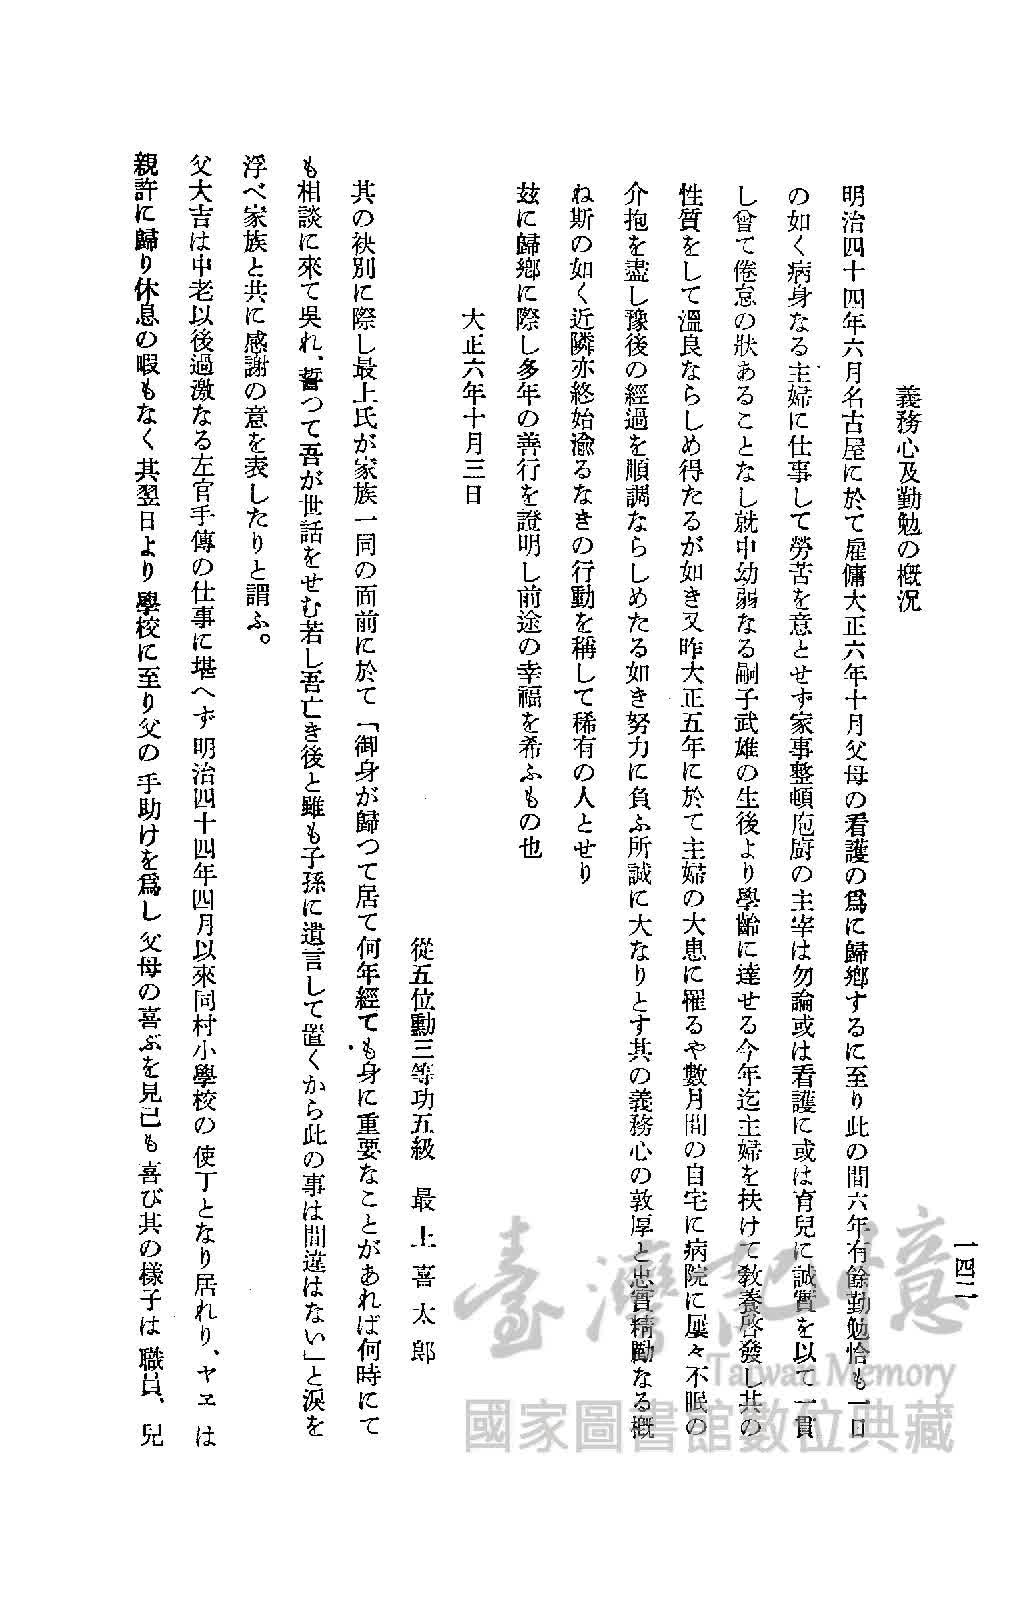 一四二
義務心及勤勉の槪況
明治四十四年六月名古屋に於て雇傭大正六年十月父母の看護の爲に歸鄕するに至り此の間六年有餘勤勉恰も一日
の如く病身なる主婦に仕事して勞苦を意とせず家事整頓庖厨の主宰は勿論或は看護に或は育兒に誠實を以て一貫
し曾て倦怠の狀あることなし就中幼弱なる嗣子武雄の生後より學齡に達せる今年迄主婦を扶けて敎養啓發し其の
性質をして溫良ならしめ得たるが如き又昨大正五年に於て主婦の大患に罹るや數月間の自宅に病院に屢々不眠の
介抱を盡し豫後の經過を順調ならしめたる如き努力に負ふ所誠に大なりとす其の義務心の敦厚と忠實精勵なる槪
ね斯の如く近隣亦終始渝るなきの行動を稱して稀有の人とせり
玆に歸鄕に際し多年の善行を證明し前途の幸福を希ふもの也
大正六年十月三日
從五位勳三等功五級 最上喜太郎
其の袂別に際し最上氏が家族一同の面前に於て「御身が歸つて居て何年經ても身に重要なことがあれば何時にて
も相談に來て吳れ、誓つて吾が世話をせむ若し吾亡き後と雖も子孫に遺言して置くから此の事は間違はない」と淚を
浮べ家族と共に感謝の意を表したりと謂ふ。
父大吉は中老以後過激なる左官手傳の仕事に堪へず明治四十四年四月以來同村小學校の使丁となり居れり、ヤヱは
親許に歸り休息の暇もなく其翌日より學校に至り父の手助けを爲し父母の喜ぶを見己も喜び其の樣子は職員、兒
臺灣記憶
Taiwan Memory
國家圖書館數位典藏